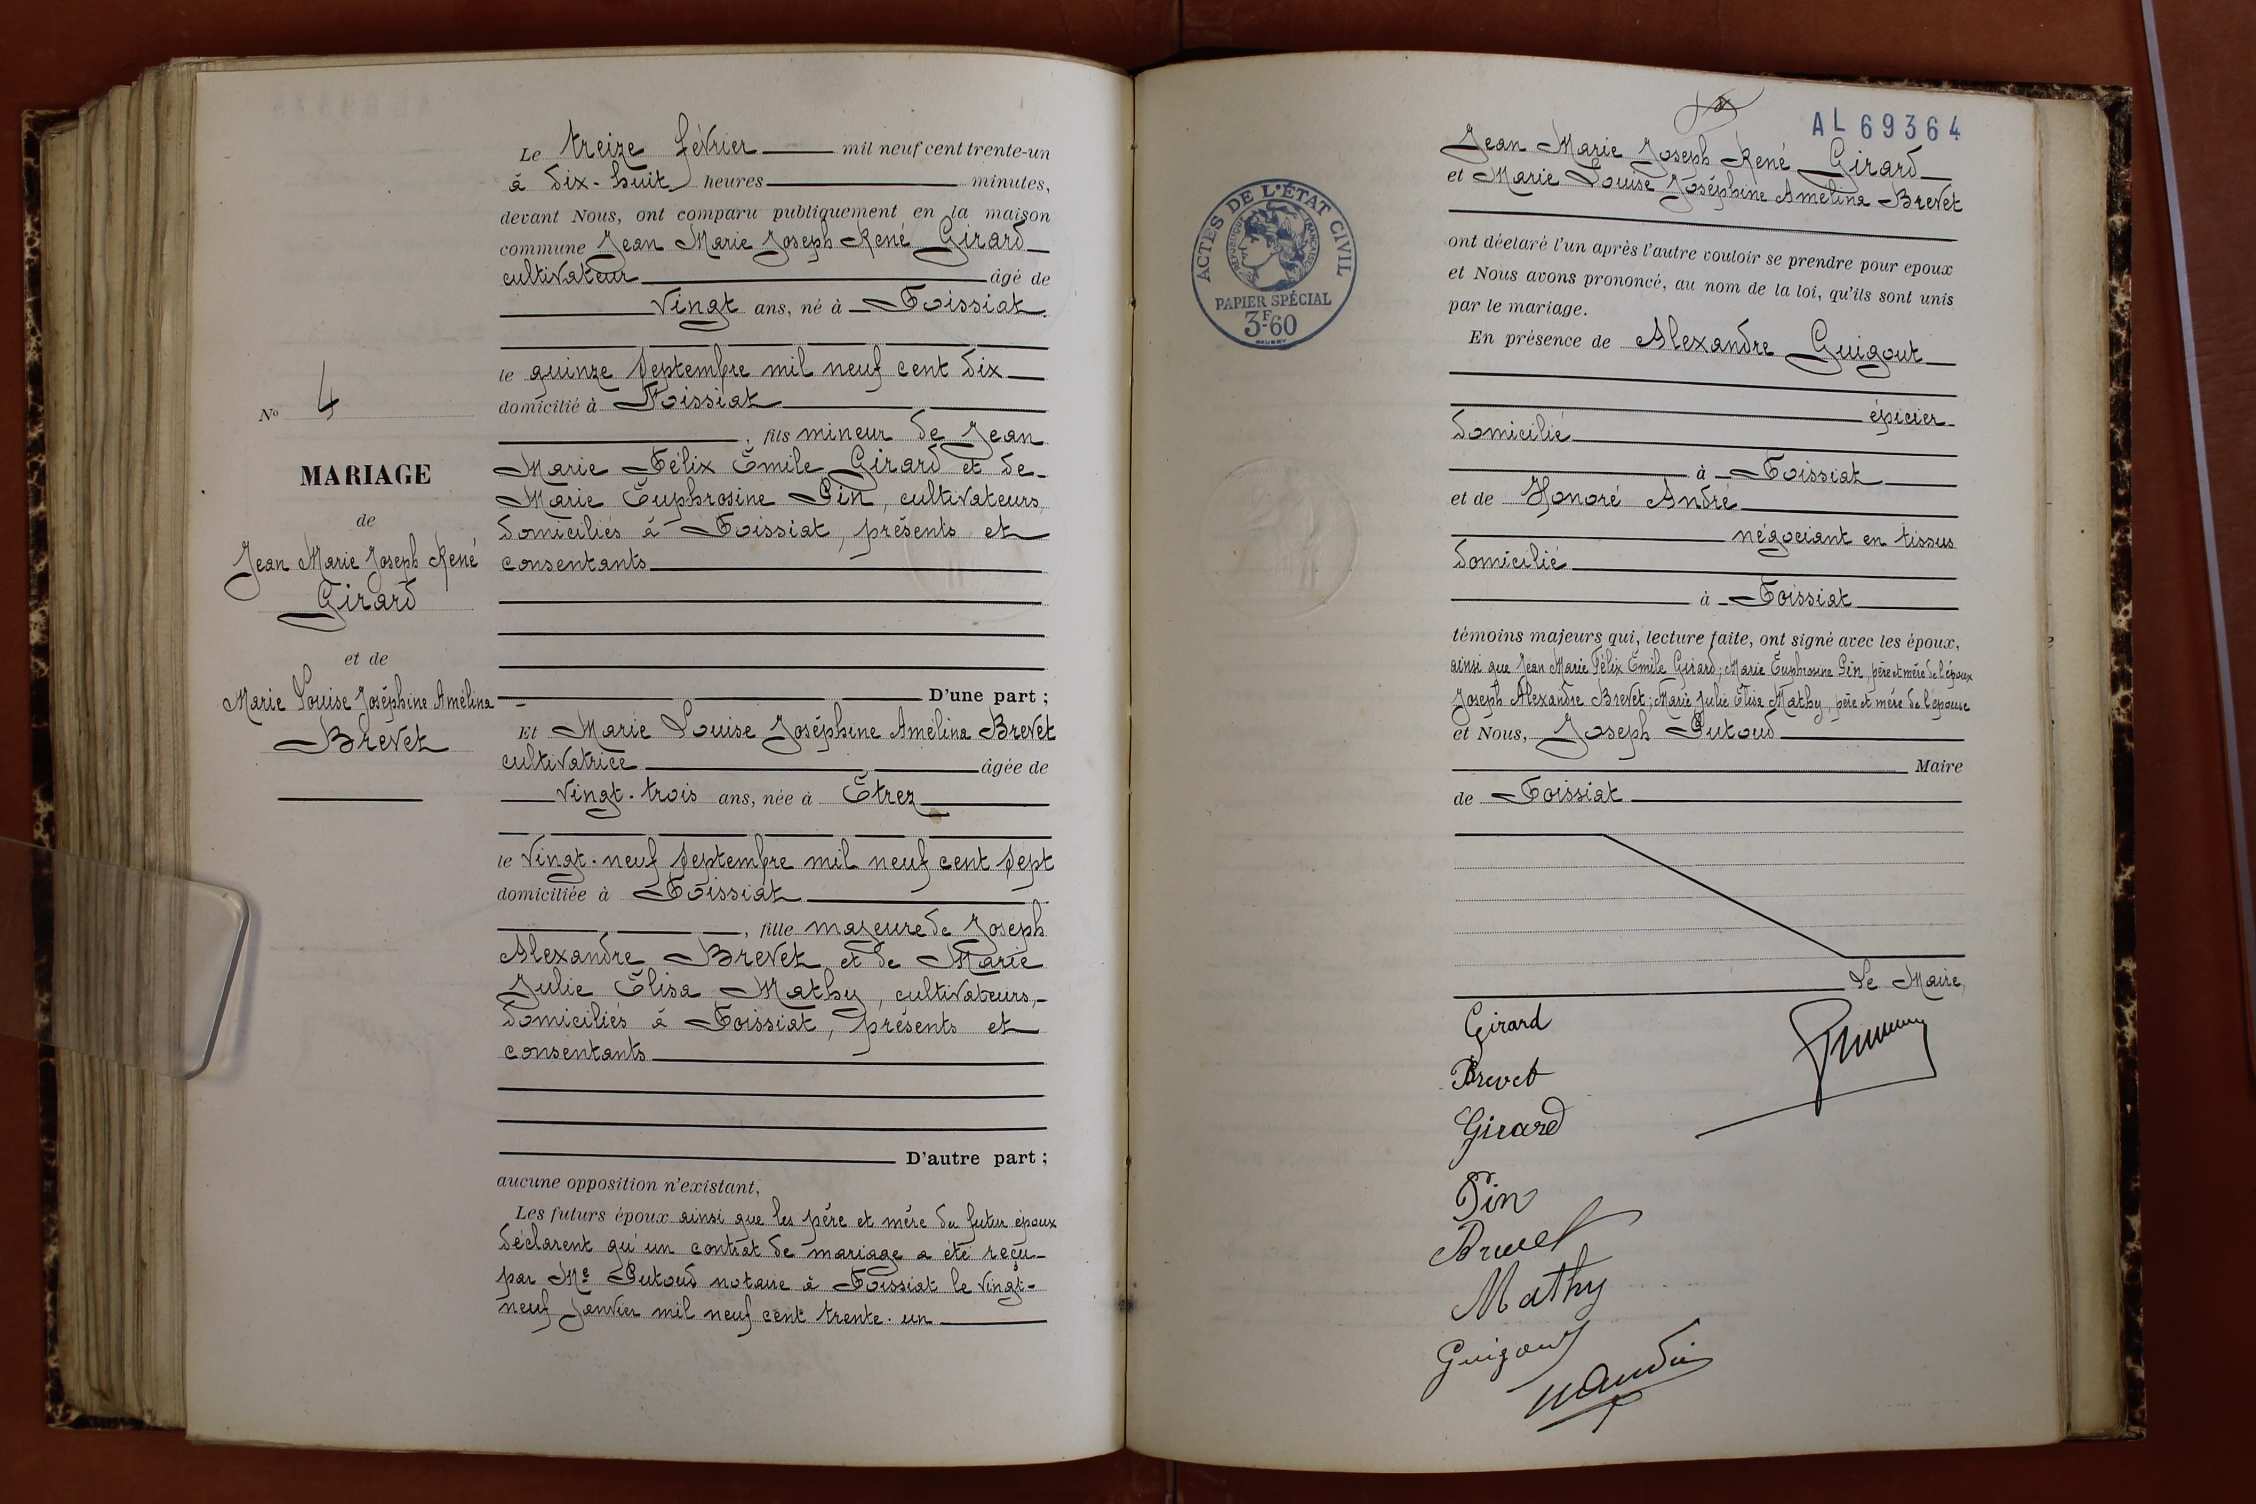 Le treize février mil neuf cent trente-un
à dix-huit heures minutes,
devant Nous, ont comparu publiquement en la maison
commune Jean Marie Joseph René Girard
cultivateur âgé de
vingt ans, né à Foissiat
le quinze septembre mil neuf cent dix
domicilié à Foissiat
, fils mineur de Jean
Marie Félix Emile Girard et de
Marie Euphrosine Pin, cultivateurs,
domiciliés à Foissiat, présents et
consentants
D'une part ;
Et Marie Louise Joséphine Amélina Brevet
cultivatrice âgée de
vingt-trois ans, née à Etrez
le vingt-neuf septembre mil neuf cent sept
domiciliée à Foissiat
, fille majeure de Joseph
Alexandre Brevet et de Marie
Julie Elisa Mathy, cultivateurs,
domiciliés à Foissiat, présents et
consentants
D'autre part ;
aucune opposition n'existant,
Les futurs époux ainsi que les père et mère du futur époux
déclarent qu'un contrat de mariage a été reçu
par Me Putoud notaire à Foissiat le vingt-
neuf janvier mil neuf cent trente-un
No 4
MARIAGE
de
Jean Marie Joseph René
Girard
et de
Marie Louise Joséphine Amélina
Brevet
AL 69364
ACTES DE L'ÉTAT CIVIL
RÉPUBLIQUE FRANÇAISE
PAPIER SPÉCIAL
3F.60
Jean Marie Joseph René Girard
et Marie Louise Joséphine Amélina Brevet
ont déclaré l'un après l'autre vouloir se prendre pour epoux
et Nous avons prononcé, au nom de la loi, qu'ils sont unis
par le mariage.
En présence de Alexandre Guigout
épicier
domicilié
à Foissiat
et de Honoré André
négociant en tissus
domicilié
à Foissiat
témoins majeurs qui, lecture faite, ont signé avec les époux,
ainsi que Jean Marie Félix Emile Girard; Marie Euphrosine Pin, père et mère de l'époux
Joseph Alexandre Brevet; Marie Julie Elisa Mathy, père et mère de l'épouse
et Nous, Joseph Putoud
Maire
de Foissiat
Le Maire,
Girard
Brevet
Girard
Pin
Brevet
Mathy
Guigout